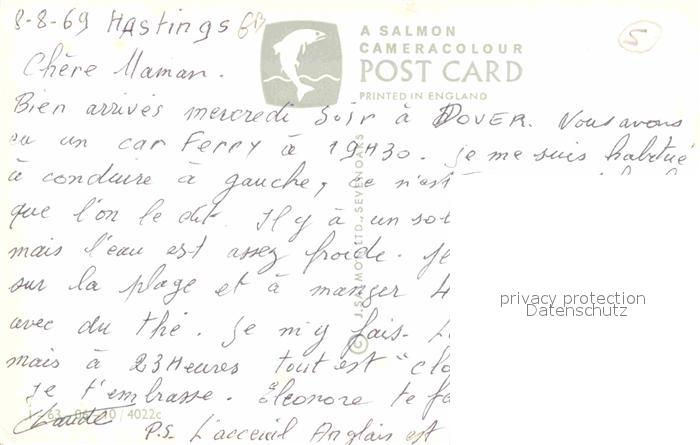 8-8-69 Hastings GB
5
A SALMON
CAMERACOLOUR
POST CARD
PRINTED IN ENGLAND
Chère Maman.
Bien arrivés mercredi soir à DOVER. Nous avons
eu un car Ferry à 19H30. je me suis habitué
à conduire à gauche, ce n'est
que l'on le dit. Il y à un so
mais l'eau est assez froide. Je
sur la plage et à manger 4
avec du thé. Je m'y fais.
mais à 23Heures tout est "clo
Je t'embrasse. Eleonore te fa
Claude
P.S. L'acceuil Anglais est
© J. SALMON LTD., SEVENOAKS
4022c
privacy protection
Datenschutz